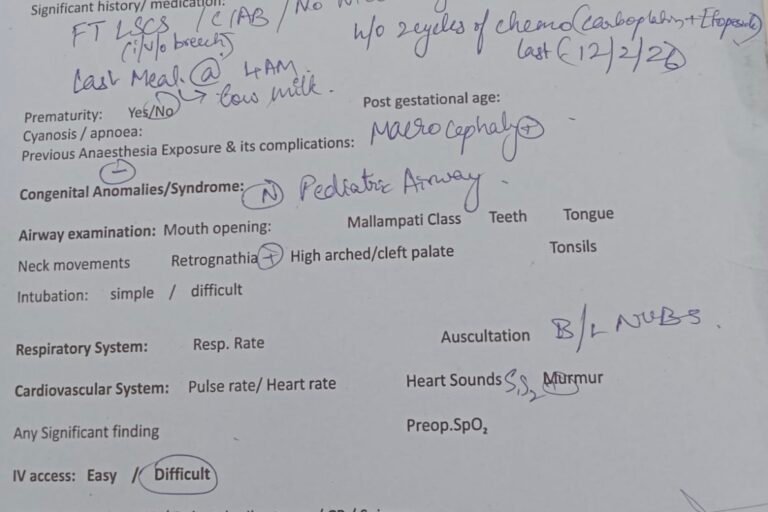 Significant history/ medication:
FT LSCS / CIAB / No
(i/v/o breech)
h/o 2 cycles of chemo (Carboplatin + Etoposide)
last (12/2/26)
Last Meal @ 4 AM.
↳ Cow milk.
Prematurity: Yes/No
Post gestational age:
Cyanosis / apnoea:
Macrocephaly +
Previous Anaesthesia Exposure & its complications:
-
Congenital Anomalies/Syndrome: N Pediatric Airway.
Airway examination: Mouth opening: Mallampati Class Teeth Tongue
Neck movements Retrognathia + High arched/cleft palate Tonsils
Intubation: simple / difficult
Respiratory System: Resp. Rate Auscultation B/L NVBS.
Cardiovascular System: Pulse rate/ Heart rate Heart Sounds S1S2 Murmur
Any Significant finding Preop.SpO2
IV access: Easy / Difficult